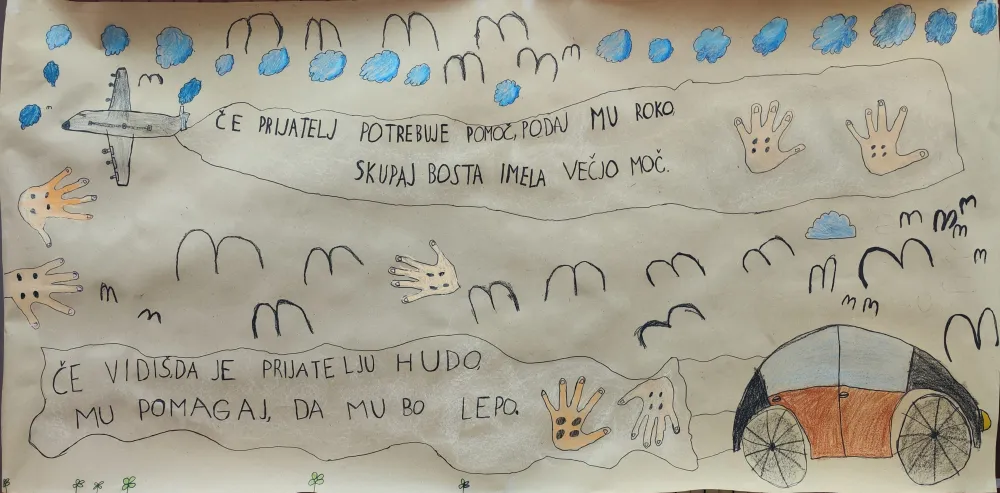 ČE PRIJATELJ POTREBUJE POMOČ, PODAJ MU ROKO,
SKUPAJ BOSTA IMELA VEČJO MOČ.
ČE VIDIŠ,DA JE PRIJATELJU HUDO,
MU POMAGAJ, DA MU BO LEPO.